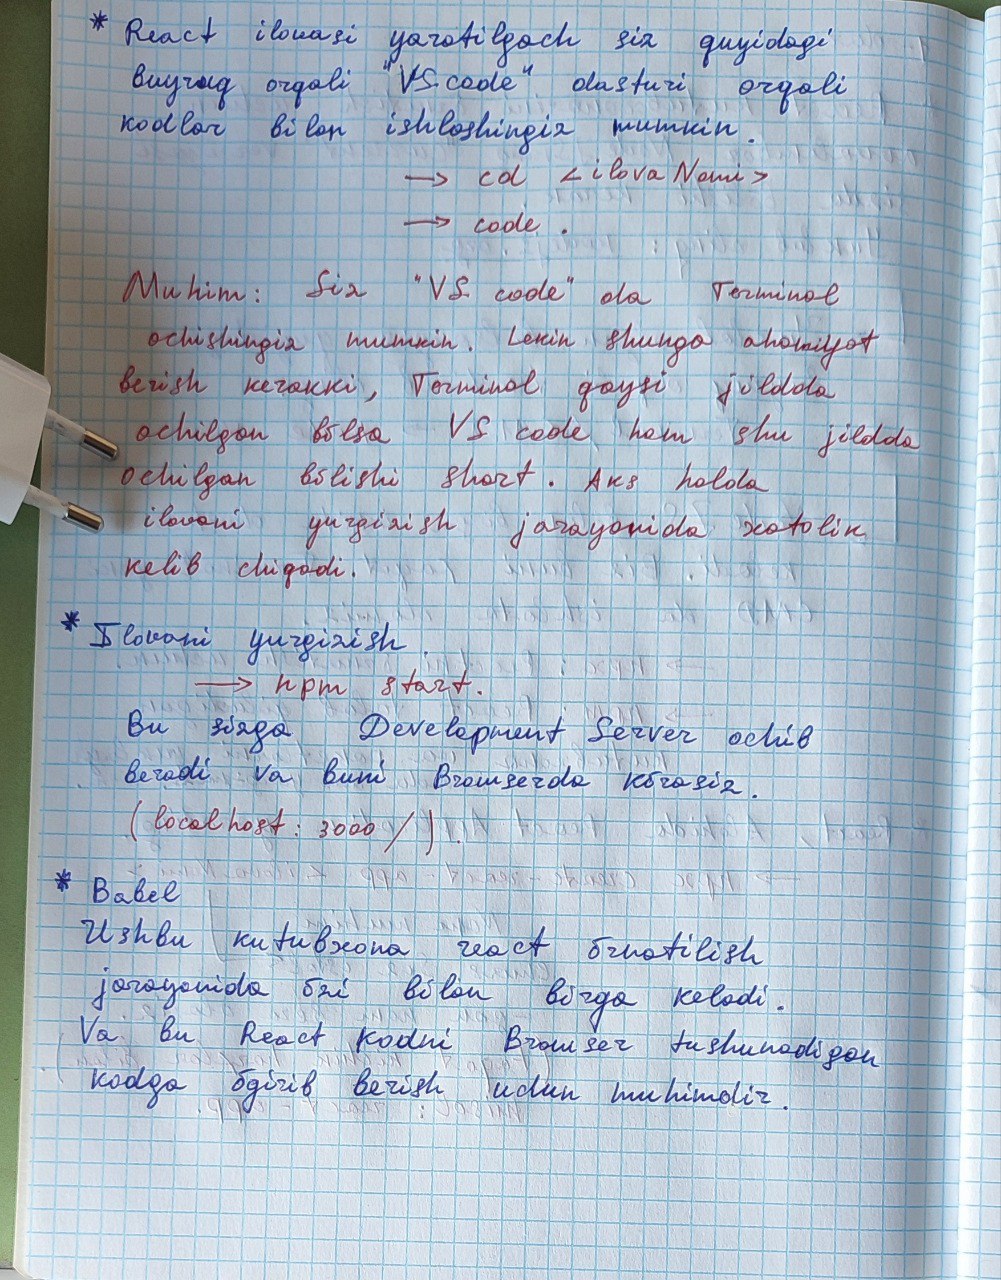 * React ilovasi yaratilgach siz quyidagi
buyruq orqali "VS code" dasturi orqali
kodlar bilan ishlashingiz mumkin.
→ cd <ilovaNomi>
→ code .
Muhim: Siz "VS code" da Terminal
ochishingiz mumkin. Lekin shunga ahamiyat
berish kerakki, Terminal qaysi jildda
ochilgan bõlsa VS code ham shu jildda
ochilgan bõlishi shart. Aks holda
ilovani yurgizish jarayonida xatolik
kelib chiqadi.
* Ilovani yurgizish.
→ npm start.
Bu sizga Development Server ochib
beradi va buni Browserda kõrasiz.
(localhost: 3000/)
* Babel
Ushbu kutubxona react õrnatilish
jarayonida õzi bilan birga keladi.
Va bu React kodni Browser tushunadigan
kodga õgirib berish uchun muhimdir.